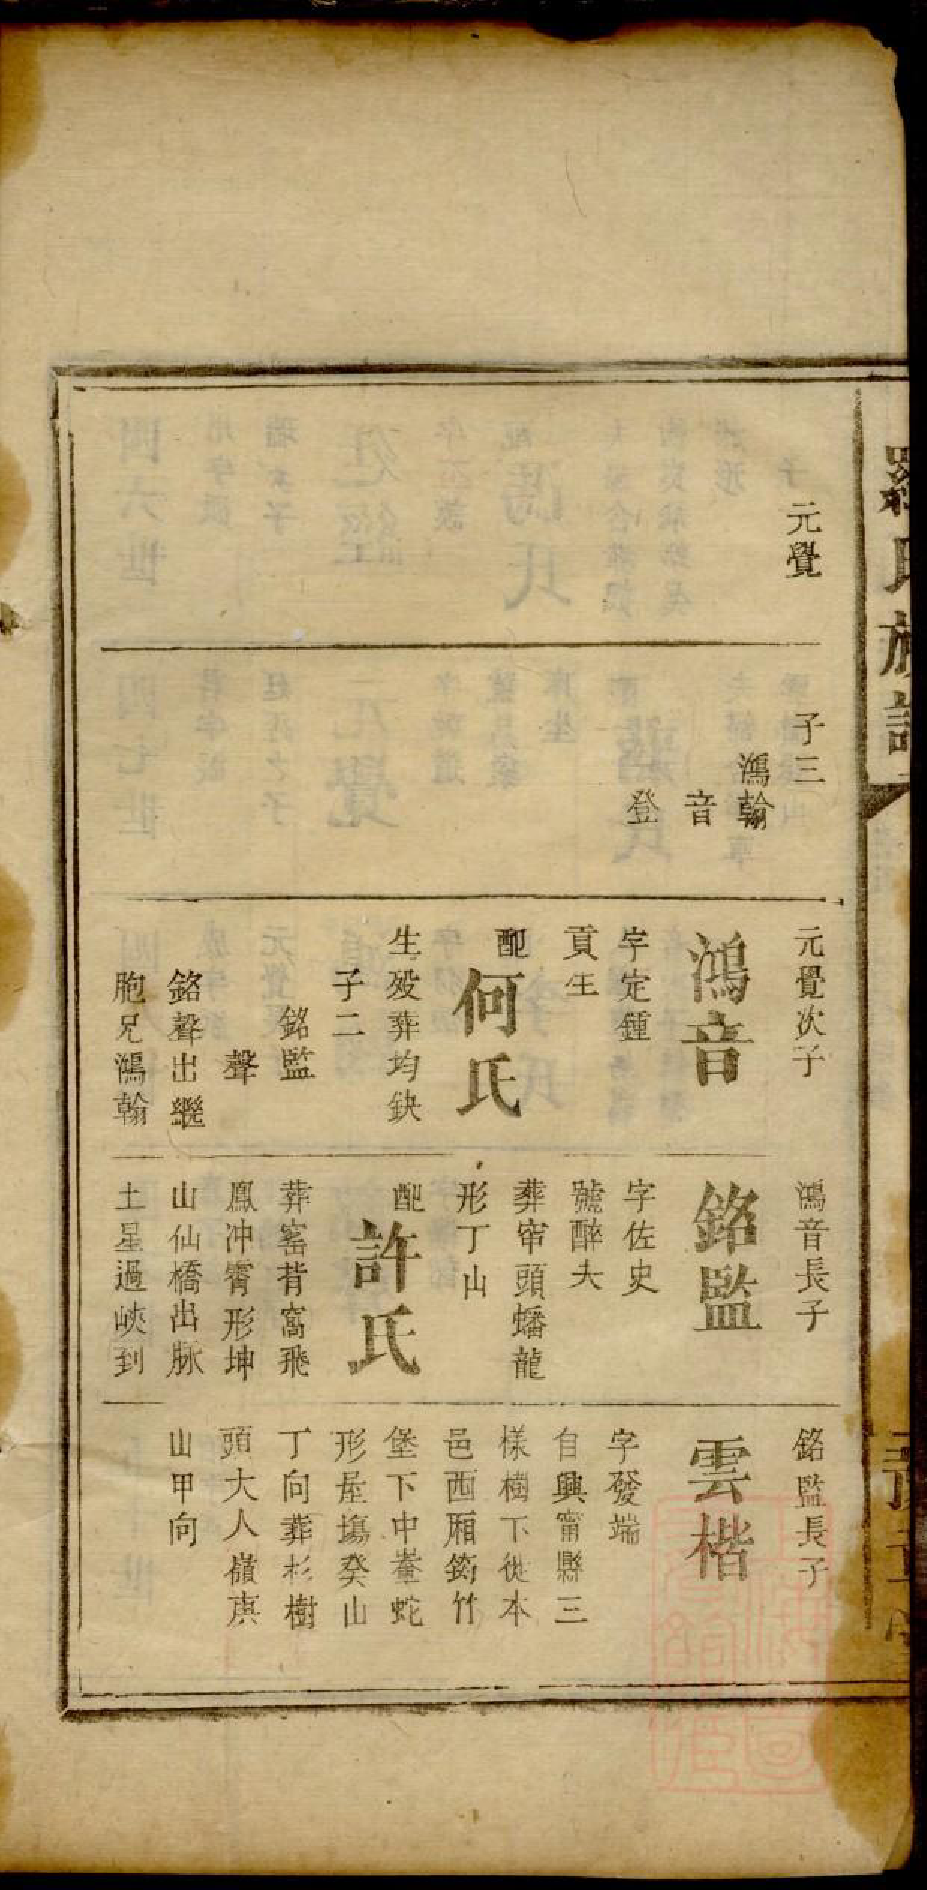 羅氏族譜
元覺
子三
鴻翰
音
登
元覺次子
鴻音
字定鍾
貢生
配
何氏
生殁葬均缺
子二
銘監
聲
銘聲出繼
胞兄鴻翰
鴻音長子
銘監
字佐史
號醉夫
葬窂頭蟠龍
形丁山
配
許氏
葬窰背窩飛
鳳冲霄形坤
山仙橋出脉
土星過峽到
銘監長子
雲楷
字發端
自興甯縣三
樣樹下從本
邑西厢筠竹
堡下中輋蛇
形屋塲癸山
丁向葬杉樹
頭大人嶺
山甲向